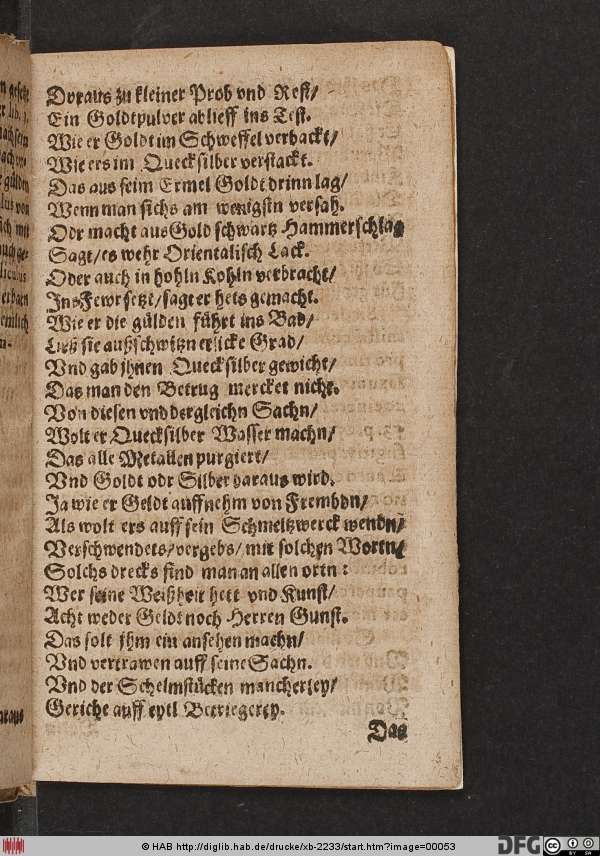 n gesetz
er lib. 3.
nach sein
gülden
lus von
sich mit
auch ge-
erbarn
emlich
n-
araus
Doraus zu kleiner Prob vnd Rest/
Ein Goldtpulver ablieff ins Test.
Wie er Goldt im Schweffel verbackt/
Wie ers im Quecksilber verstackt.
Das aus seim Ermel Goldt drinn lag/
Wenn man sichs am wenigstn versah.
Odr macht aus Gold schwartz Hammerschlag
Sagt/ es wehr Orientalisch Lack.
Oder auch in hohln Kohln verbracht/
Ins Fewr setzt/ sagt er hets gemacht.
Wie er die gülden führt ins Bad/
Ließ sie außschwitzn etlicke Grad/
Vnd gab jhnen Quecksilber gewicht/
Das man den Betrug mercket nicht.
Von diesen vnd dergleichn Sachn/
Wolt er Quecksilber Wasser machn/
Das alle Metallen purgiert/
Vnd Goldt odr Silber daraus wird.
Ja wie er Geldt auffnehm von Frembdn/
Als wolt ers auff sein Schmeltzwerck wendn/
Verschwendets/ vergebs/ mit solchen Wortn/
Solchs drecks find man an allen ortn:
Wer seine Weißheit hett vnd Kunst/
Acht weder Geldt noch Herren Gunst.
Das solt jhm ein ansehen machn/
Vnd vertrawen auff seine Sachn.
Vnd der Schelmstücken mancherley/
Geriche auff eytl Betriegerey.
Das
© HAB http://diglib.hab.de/drucke/xb-2233/start.htm?image=00053
DFG
cc
BY SA